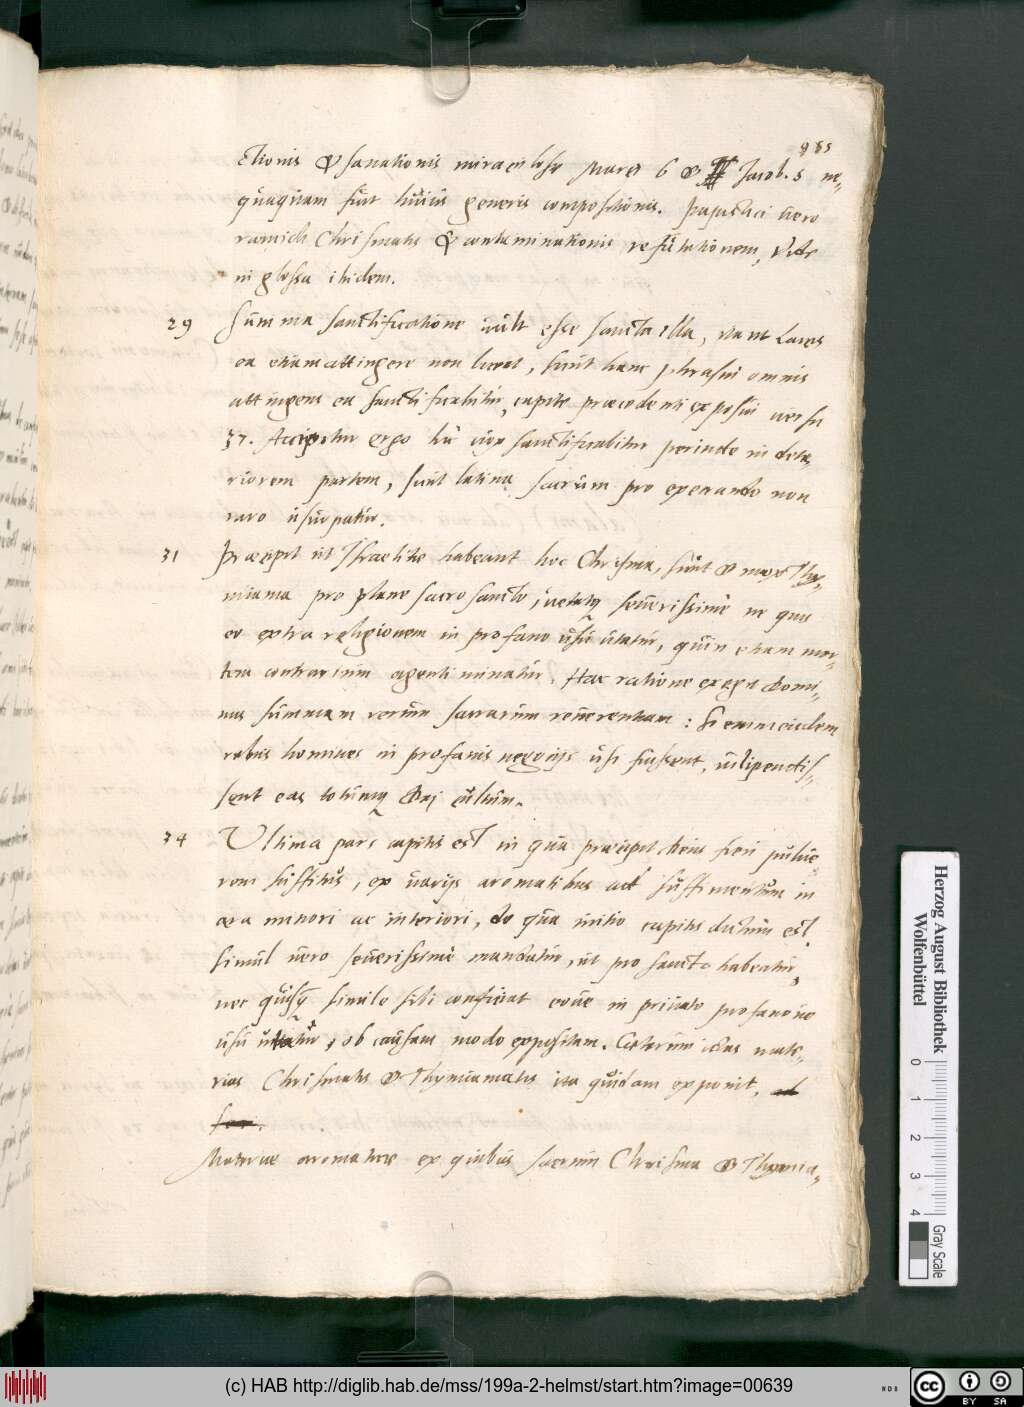 985
ctionis & sanationis miraculosę Marci 6 & Jacob. 5 ne-
quaquam sunt huius generis compositionis. Papistici vero
rancidi Chrismatis & contaminationis refutationem, vide
in glossa ibidem.
29 Summa sanctificatione vult esse sancta illa, ita ut Laicis
ea etiam attingere non liceat, sicut hanc phrasin omnis
attingens ea sanctificabitur, capite præcedenti exposui versu
37. Accipitur ergo hic vox sanctificabitur perinde in dete-
riorem partem, sicut latinis sacrum pro execrando non
raro usurpatur.
31 Præcipit ut Israelitæ habeant hoc Chrisma, sicut & mox Thy-
miama pro plane sacrosancto, vetatq severissimè ne quis
eo extra religionem in profano usu utatur, quin etiam mor-
tem contrarium agenti minatur. Hac ratione exegit Domi-
nus summam rerum sacrarum reverentiam: si enim eisdem
rebus homines in profanis negotijs usi fuissent, vilipendis-
sent eas totumq Dei cultum.
34 Ultima pars capitis est in qua præcipit Deus fieri pulve
rem suffitus, ex varijs aromatibus ad suffimentum in
ara minori ac interiori, de qua initio capitis dictum est.
simul vero severissimè mandatur, ut pro sancto habeatur,
nec quisq simile sibi conficiat eoue in privato profanove
usu utatur, ob causam modo expositam. Cæterum idas mate-
rias Chrismatis & Thymiamatis ita quidam exponit,
Materiæ aromaticæ ex quibus sacrum Chrisma & Thymia-
Herzog August Bibliothek
Wolfenbüttel
0 1 2 3 4
Gray Scale
(c) HAB http://diglib.hab.de/mss/199a-2-helmst/start.htm?image=00639
cc BY SA